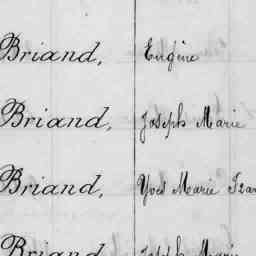 Briand, Eugène
Briand, Joseph Marie
Briand, Yves Marie
Briand Joseph Marie